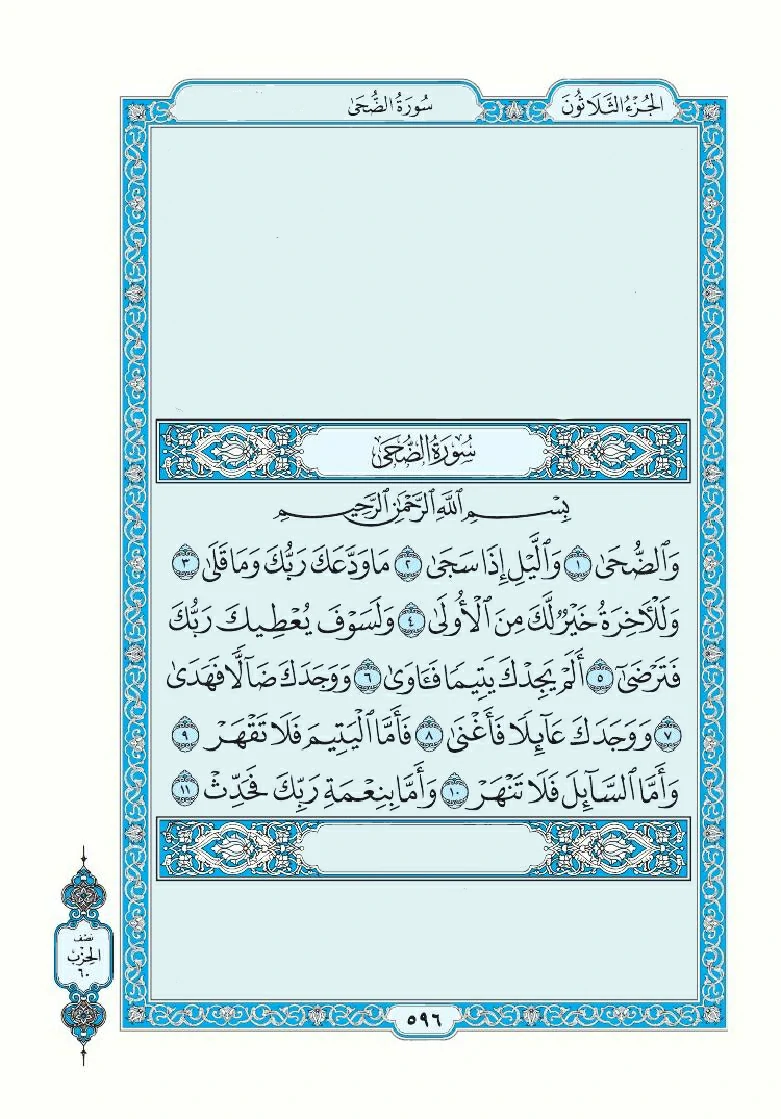 الجُزْءُ الثَّلَاثُونَ
سُورَةُ الضُّحَىٰ
سُورَةُ الضُّحَىٰ
بِسْمِ ٱللَّهِ ٱلرَّحْمَٰنِ ٱلرَّحِيمِ
وَٱلضُّحَىٰ ١ وَٱلَّيْلِ إِذَا سَجَىٰ ٢ مَا وَدَّعَكَ رَبُّكَ وَمَا قَلَىٰ ٣
وَلَلْءَاخِرَةُ خَيْرٌ لَّكَ مِنَ ٱلْأُولَىٰ ٤ وَلَسَوْفَ يُعْطِيكَ رَبُّكَ
فَتَرْضَىٰٓ ٥ أَلَمْ يَجِدْكَ يَتِيمًا فَـَٔاوَىٰ ٦ وَوَجَدَكَ ضَآلًّا فَهَدَىٰ
٧ وَوَجَدَكَ عَآئِلًا فَأَغْنَىٰ ٨ فَأَمَّا ٱلْيَتِيمَ فَلَا تَقْهَرْ ٩
وَأَمَّا ٱلسَّآئِلَ فَلَا تَنْهَرْ ١٠ وَأَمَّا بِنِعْمَةِ رَبِّكَ فَحَدِّثْ ١١
نصف
الحِزْب
٦٠
٥٩٦